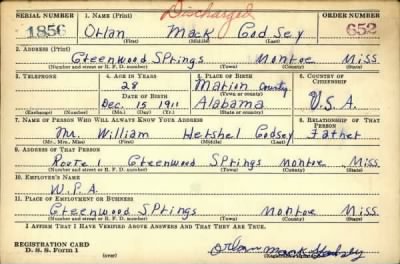 SERIAL NUMBER 1. NAME (Print) Discharged ORDER NUMBER
1856 Orlan Mack Godsey 652
(First) (Middle) (Last)
2. ADDRESS (Print)
Greenwood Springs Monroe Miss.
(Number and street or R. F. D. number) (Town) (County) (State)
3. TELEPHONE 4. AGE IN YEARS 5. PLACE OF BIRTH 6. COUNTRY OF CITIZENSHIP
28 Marion County
DATE OF BIRTH (Town or county)
Dec. 15 1911 Alabama U.S.A.
(Exchange) (Number) (Mo.) (Day) (Yr.) (State or country)
7. NAME OF PERSON WHO WILL ALWAYS KNOW YOUR ADDRESS 8. RELATIONSHIP OF THAT PERSON
Mr. William Hershel Godsey Father
(Mr., Mrs., Miss) (First) (Middle) (Last)
9. ADDRESS OF THAT PERSON
Route 1 Greenwood Springs Monroe Miss.
(Number and street or R. F. D. number) (Town) (County) (State)
10. EMPLOYER'S NAME
W.P.A.
11. PLACE OF EMPLOYMENT OR BUSINESS
Greenwood Springs Monroe Miss.
(Number and street or R. F. D. number) (Town) (County) (State)
I AFFIRM THAT I HAVE VERIFIED ABOVE ANSWERS AND THAT THEY ARE TRUE.
REGISTRATION CARD
D. S. S. Form 1 Orlan Mack Godsey